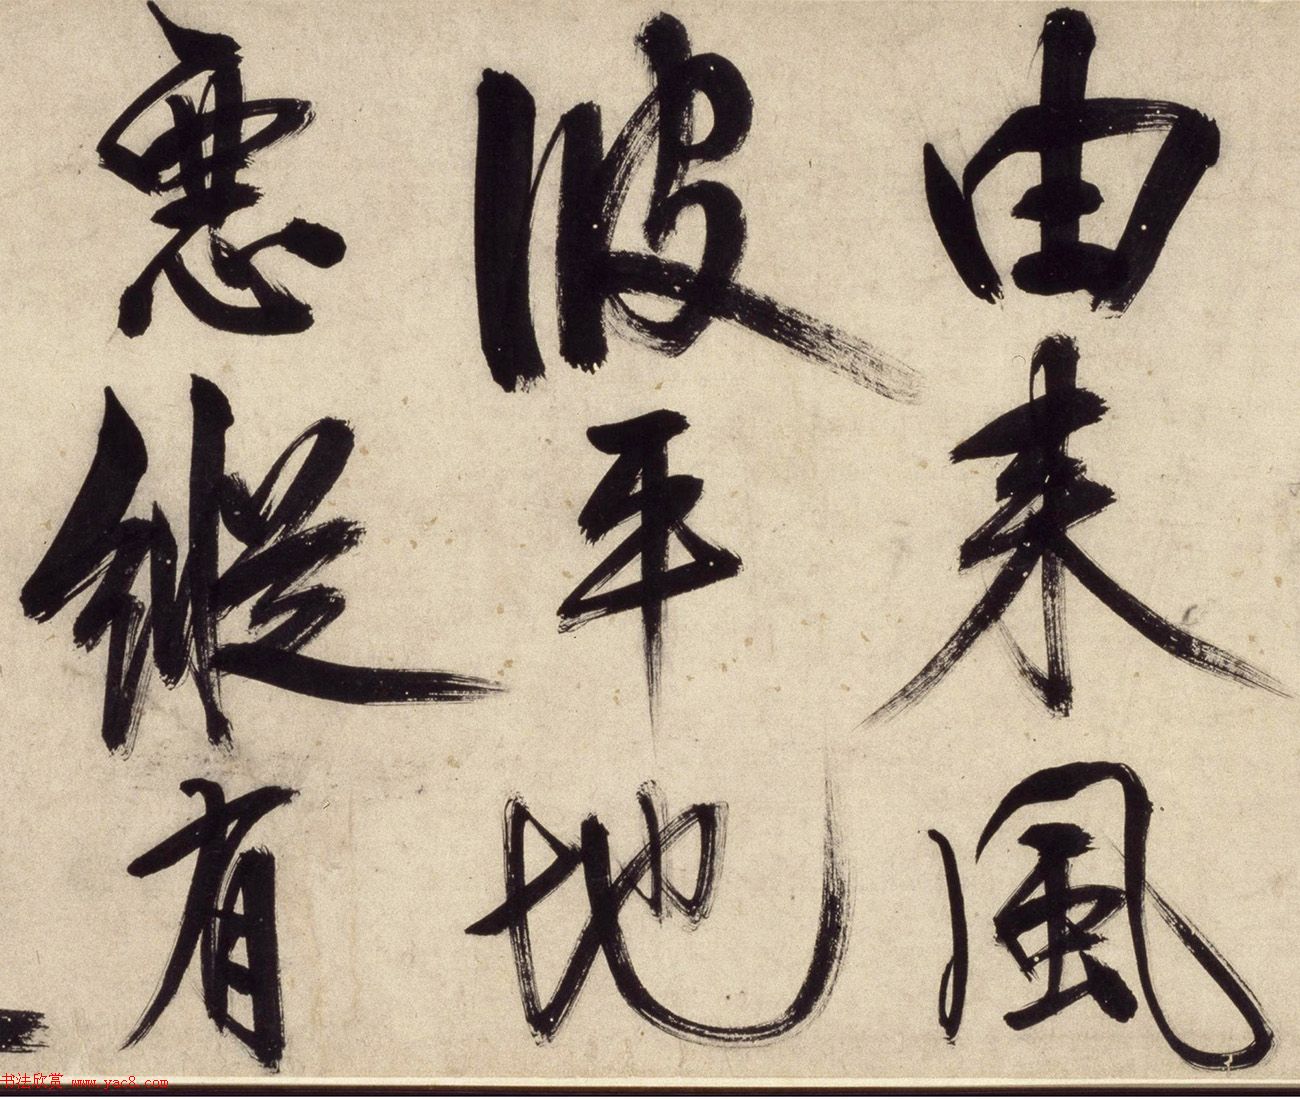 由来風
波平地
惡縱有
书法欣赏 www.yac8.com